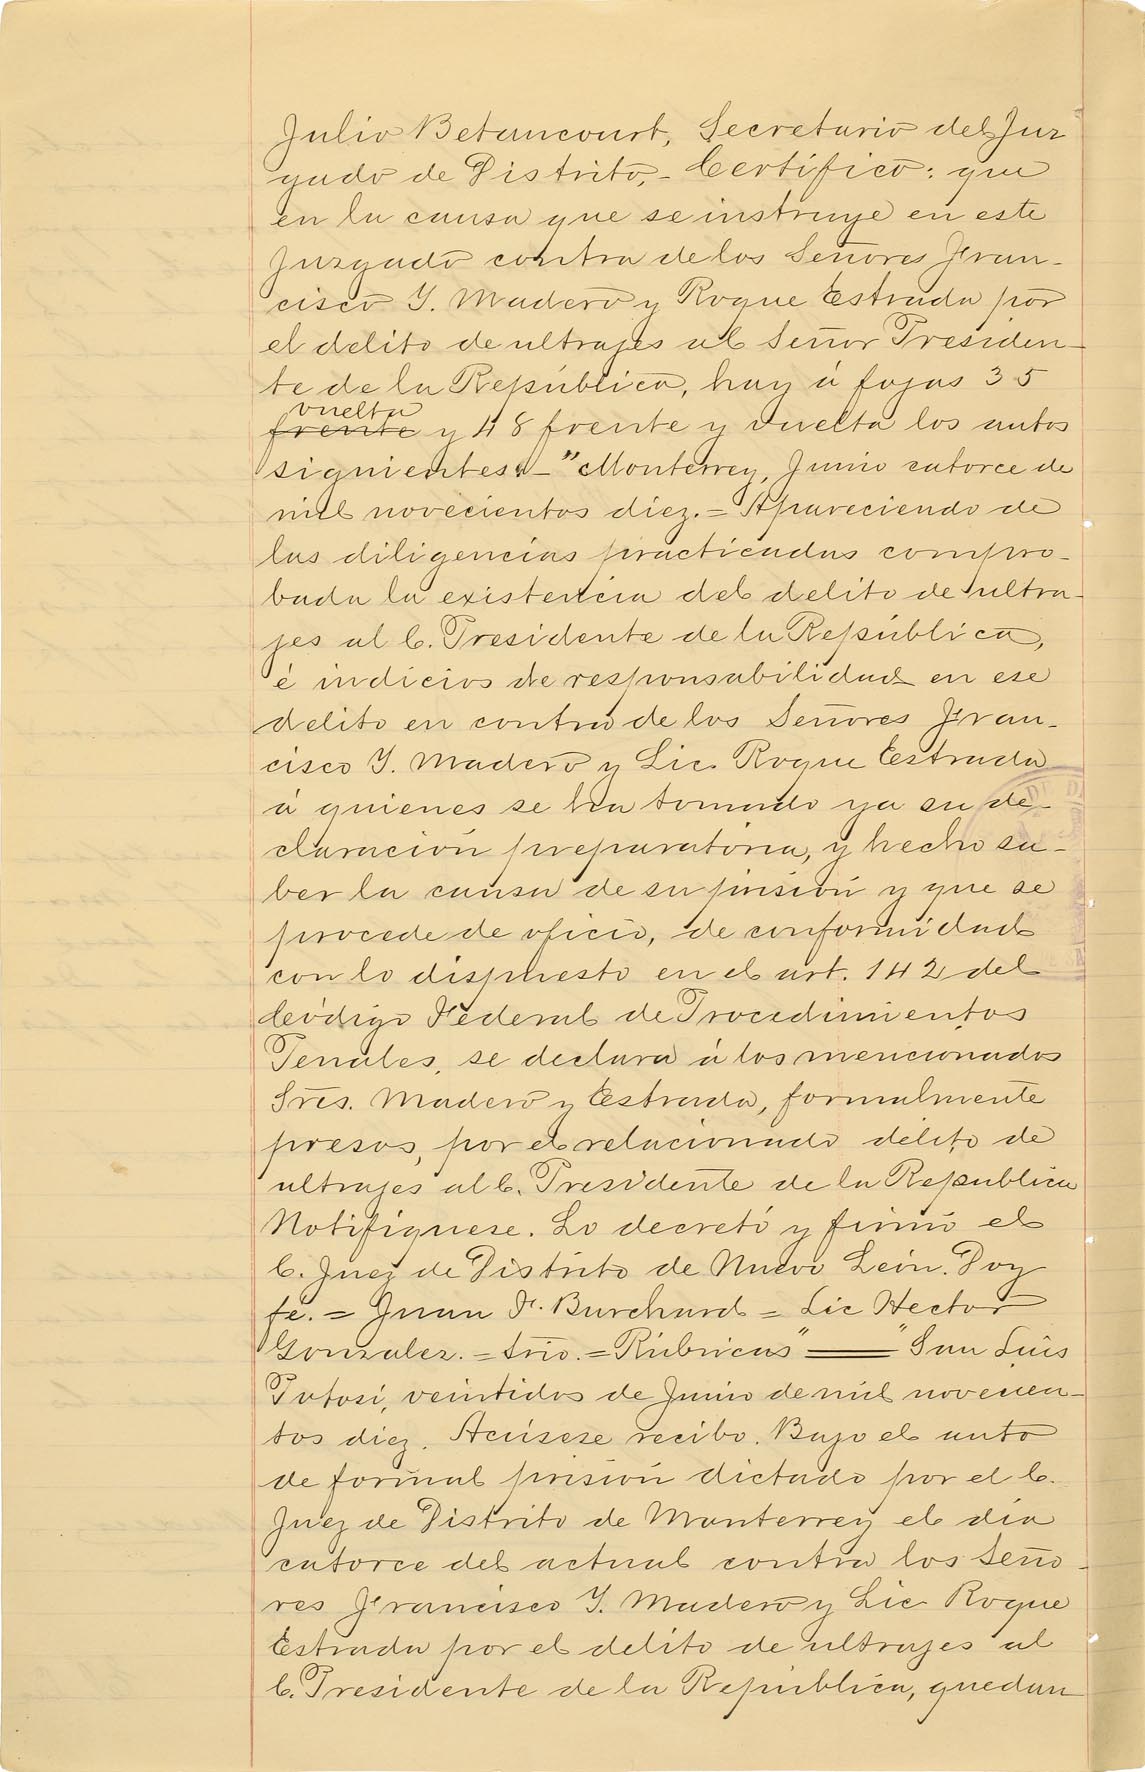 Julio Betancourt, Secretario del Juz
gado de Distrito,- Certifico: que
en la causa que se instruye en este
Juzgado contra de los Señores Fran-
cisco Y. Madero y Roque Estrada por
el delito de ultrajes al Señor Presiden-
te de la República, hay á fojas 35
vuelta
frente y 48 frente y vuelta los autos
siguientes:- "Monterrey, Junio catorce de
mil novecientos diez.= Apareciendo de
las diligencias practicadas compro-
bada la existencia del delito de ultra-
jes al C. Presidente de la República,
é indicios de responsabilidad en ese
delito en contra de los Señores Fran-
cisco Y. Madero y Lic. Roque Estrada
á quienes se ha tomado ya su de-
claración preparatoria, y hecho sa-
ber la causa de su prisión y que se
procede de oficio, de conformidad
con lo dispuesto en el art. 142 del
Código Federal de Procedimientos
Penales, se declara á los mencionados
Sres. Madero y Estrada, formalmente
presos, por el relacionado delito de
ultrajes al C. Presidente de la Republica
Notifíquese. Lo decretó y firmó el
C. Juez de Distrito de Nuevo León. Doy
fe. = Juan F. Burchard = Lic Hector
Gonzalez. = Srio. = Rúbricas" ——— "San Luis
Potosí, veintidos de Junio de mil novecien-
tos diez. Acúsese recibo. Bajo el auto
de formal prisión dictado por el C.
Juez de Distrito de Monterrey el día
catorce del actual contra los Seño-
res Francisco Y. Madero y Lic Roque
Estrada por el delito de ultrajes al
C. Presidente de la República, quedan